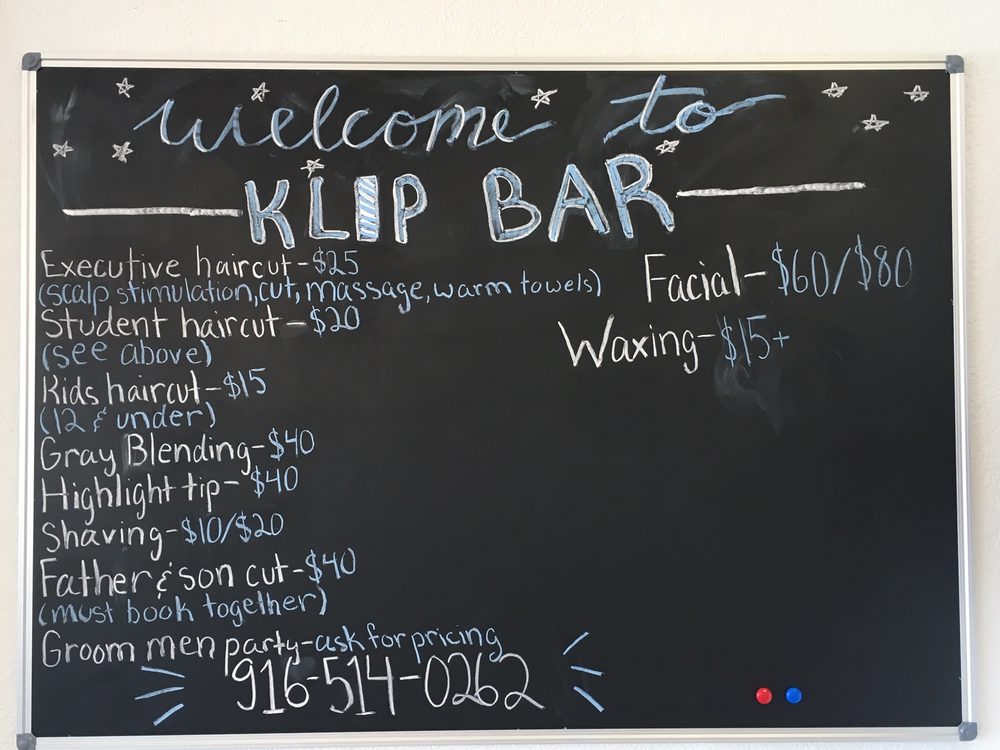 welcome to
KLIP BAR
Executive haircut-$25
(scalp stimulation, cut, massage, warm towels)
Student haircut-$20
(see above)
Kids haircut-$15
(12 & under)
Gray Blending-$40
Highlight tip-$40
Shaving-$10/$20
Father & son cut-$40
(must book together)
Groom men party-ask for pricing
916-514-0262
Facial-$60/$80
Waxing-$15+